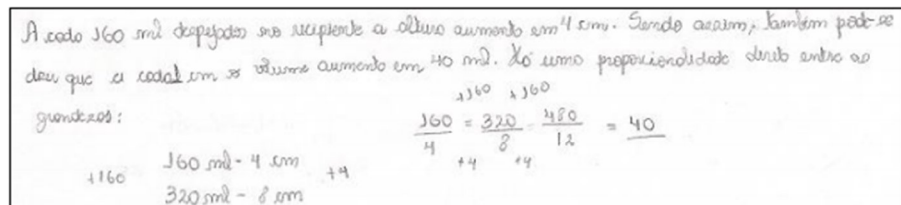 A cada 160 ml despejados no recipiente a altura aumenta em 4 cm. Sendo assim, também pode-se
dizer que a cada 1 cm o volume aumenta em 40 ml. Há uma proporcionalidade direta entre as
grandezas:
+160 +160
160/4 = 320/8 = 480/12 = 40
+4 +4
+160 160 ml - 4 cm +4
320 ml - 8 cm